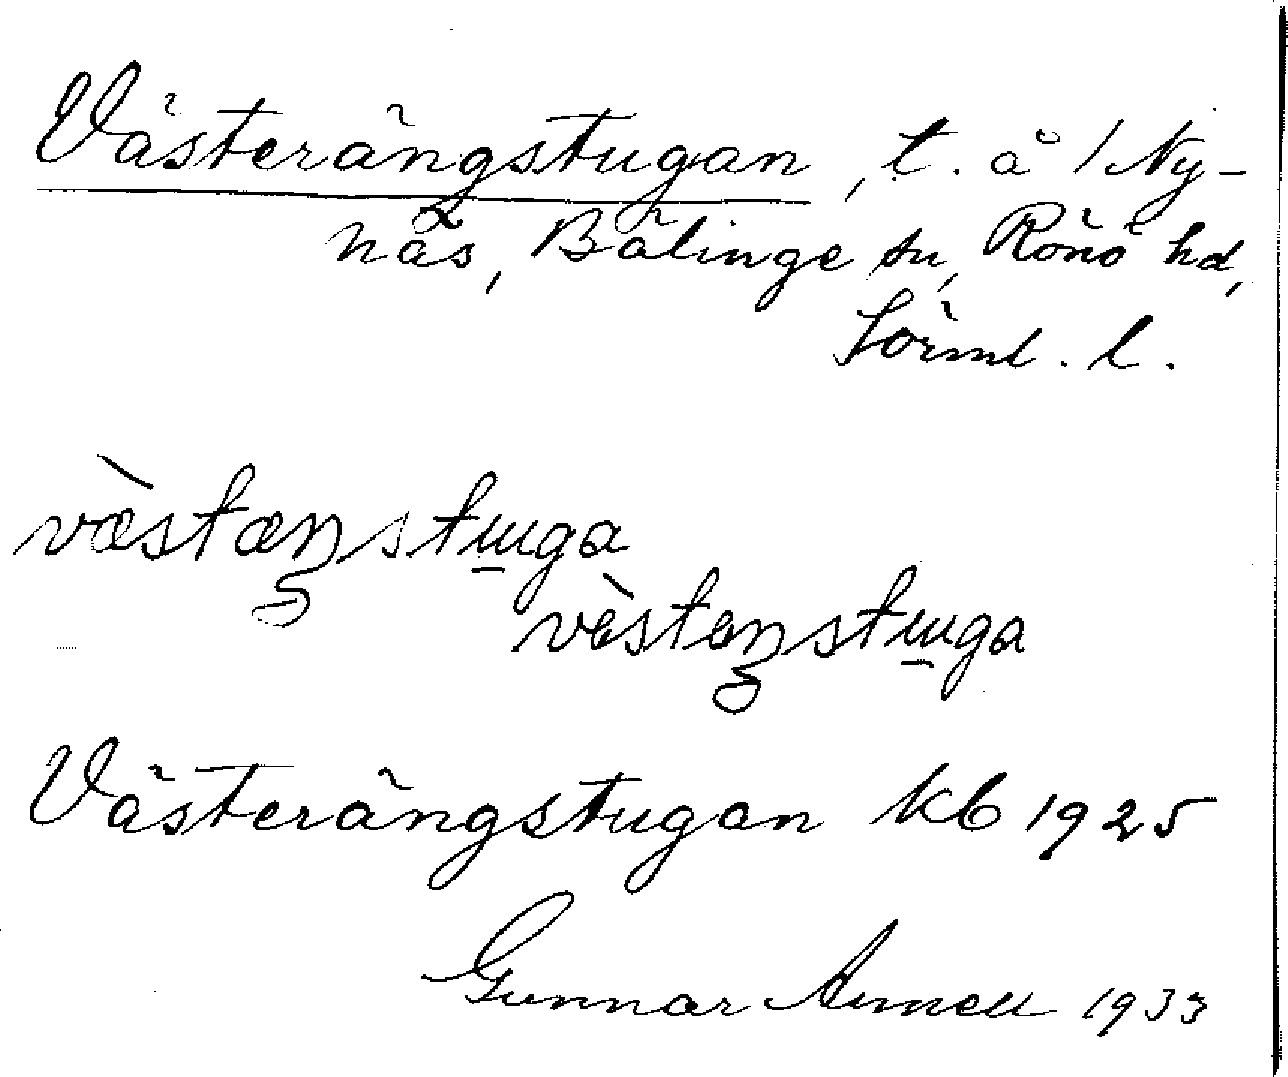 Västerängstugan, t. å 1 Ny-
näs, Bälinge sn, Rönö hd,
Sörml. l.
vœ̀stœŋstɯga
vèsteŋstɯga
Västerängstugan kb 1925
Gunnar 1933